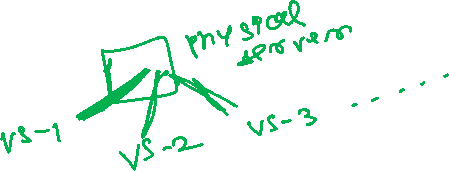 physical
server
VS-1
VS-2
VS-3 ......